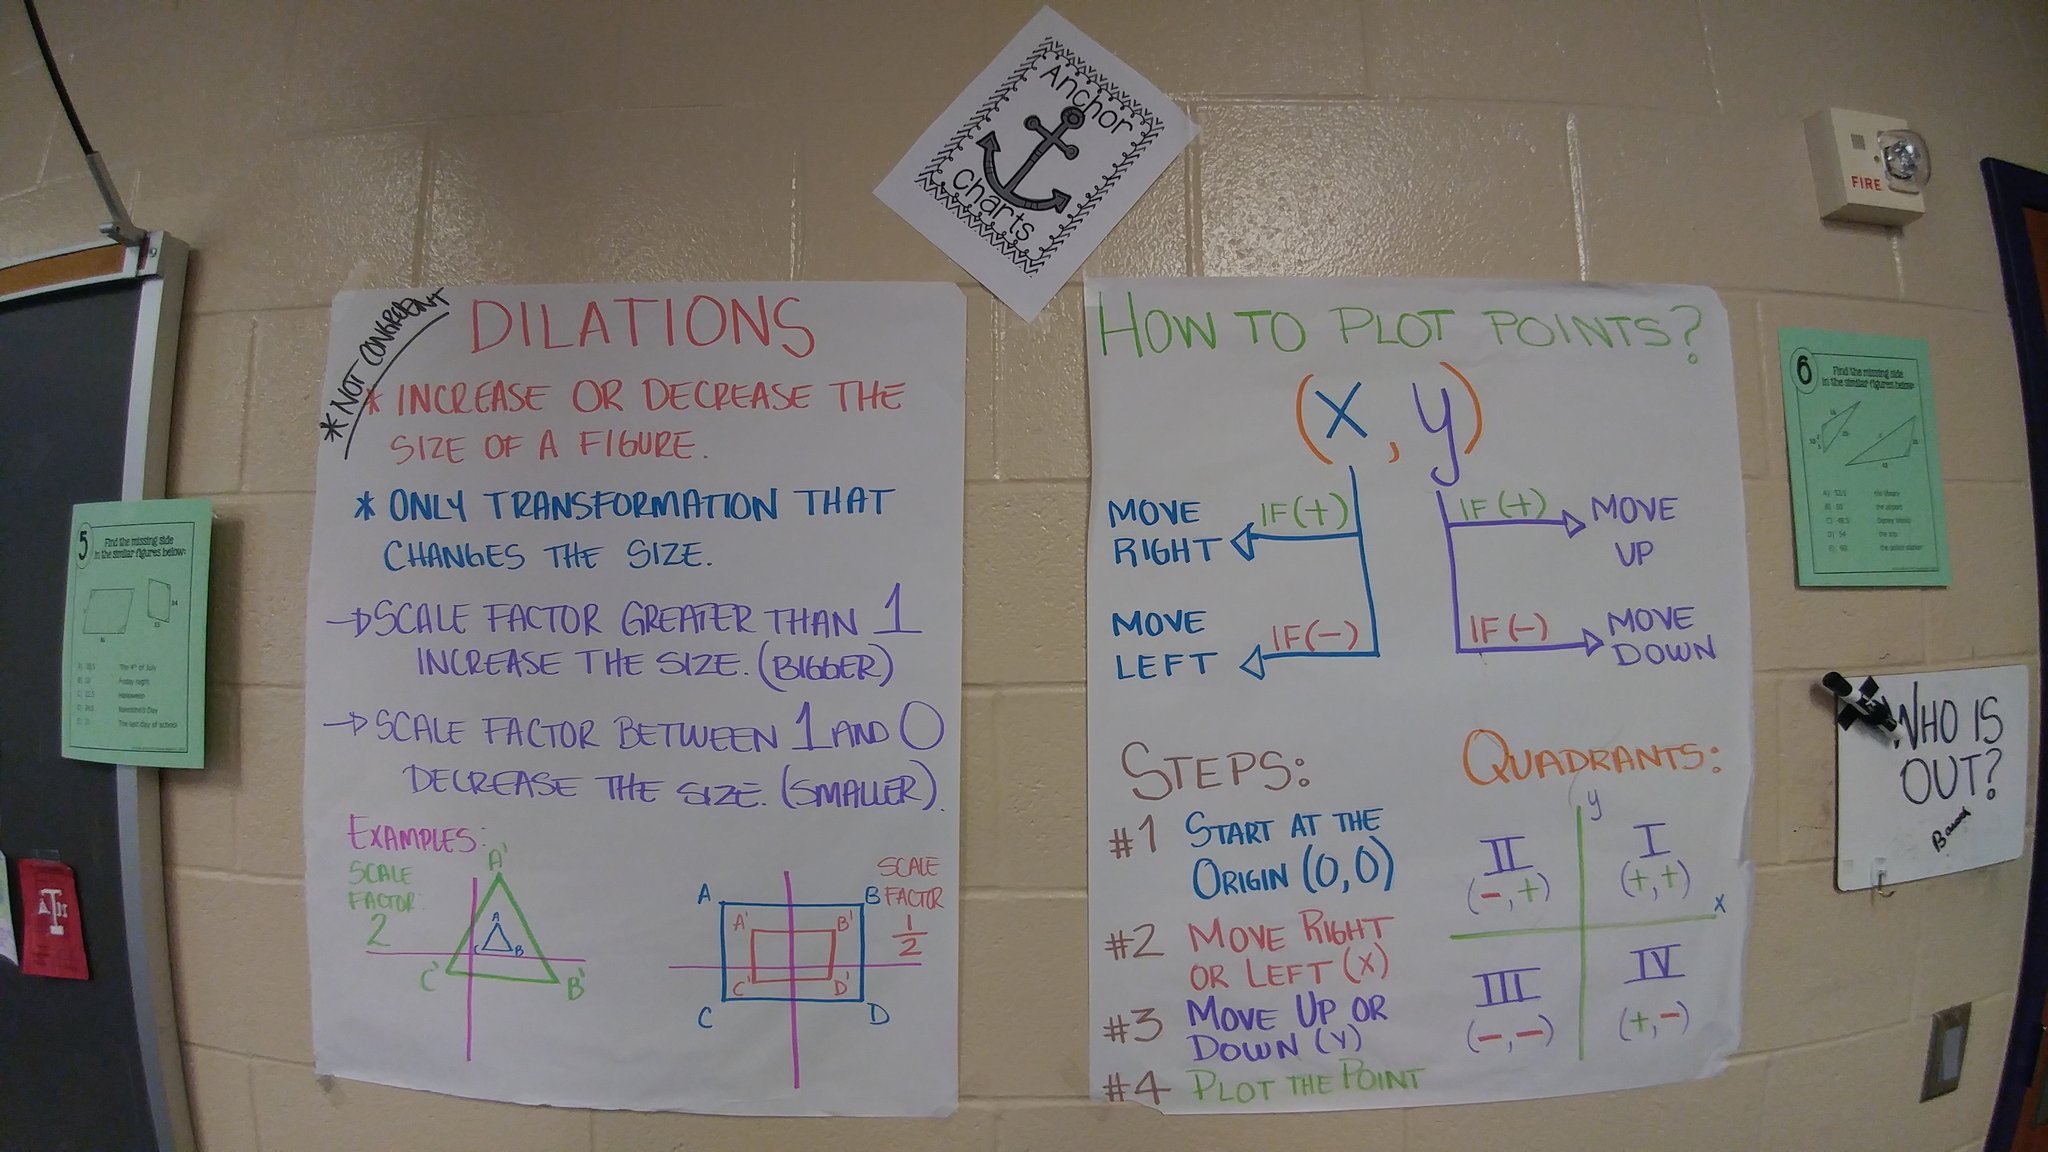 Anchor
Charts
FIRE
* NOT CONGRUENT
DILATIONS
* INCREASE OR DECREASE THE
SIZE OF A FIGURE.
* ONLY TRANSFORMATION THAT
CHANGES THE SIZE.
→ SCALE FACTOR GREATER THAN 1
INCREASE THE SIZE. (BIGGER)
→ SCALE FACTOR BETWEEN 1 AND 0
DECREASE THE SIZE. (SMALLER).
EXAMPLES:
SCALE
FACTOR:
2
A'
A
C B
C' B'
SCALE
FACTOR
1/2
A B
A' B'
C' D'
C D
HOW TO PLOT POINTS?
(x, y)
MOVE
RIGHT
IF (+)
IF (+)
MOVE
UP
MOVE
LEFT
IF (-)
IF (-)
MOVE
DOWN
STEPS:
#1 START AT THE
ORIGIN (0,0)
#2 MOVE RIGHT
OR LEFT (X)
#3 MOVE UP OR
DOWN (Y)
#4 PLOT THE POINT
QUADRANTS:
y
II I
(-,+) (+,+)
x
III IV
(-,-) (+,-)
5
Find the missing side
in the similar figures below:
The 4th of July
Friday night
Halloween
Valentine's Day
The last day of school
6
Find the missing side
in the similar figures below:
the library
the airport
Disney World
the police station
WHO IS
OUT?